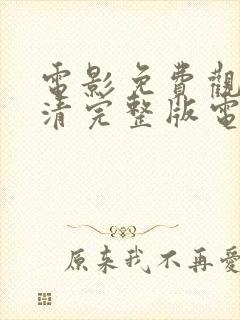 電影免費觀
清完整版電
原来我不再愛